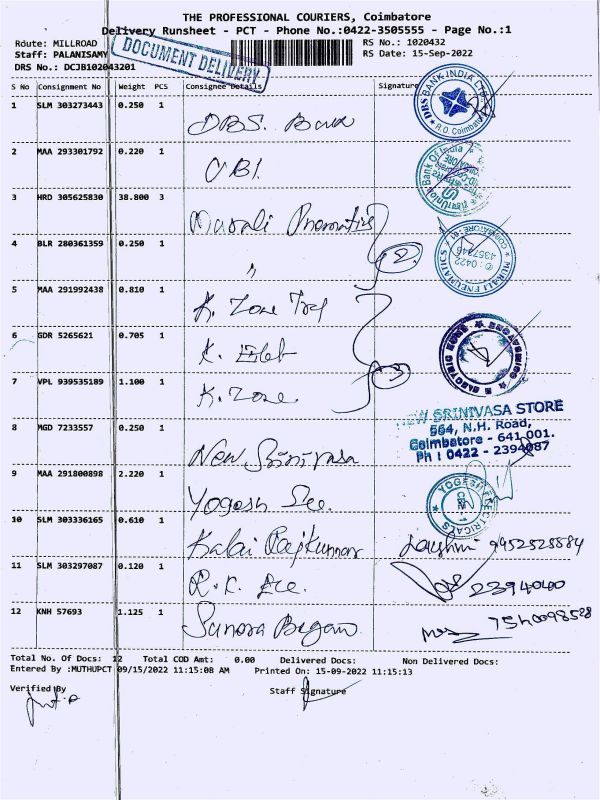 THE PROFESSIONAL COURIERS, Coimbatore
Delivery Runsheet - PCT - Phone No.:0422-3505555 - Page No.:1
Route: MILLROAD
RS No.: 1020432
Staff: PALANISAMY
RS Date: 15-Sep-2022
DRS No.: DCJB102043201
DOCUMENT DELIVERY
S No Consignment No Weight PCS Consignee Details Signature
1 SLM 303273443 0.250 1 DBS. Bank
DBS BANK INDIA LTD. R.O. Coimbatore
2 MAA 293301792 0.220 1 UBI.
Union Bank Of India
3 HRD 305625830 38.800 3 Murali Pnematics
4 BLR 280361359 0.250 1 "
2.
MURALI PNEUMATICS COIMBATORE
✆: 0422 4357346
5 MAA 291992438 0.810 1 K. Zone
6 GDR 5265621 0.705 1 K.
7 VPL 939535189 1.100 1 K. Zone
3
ELECTRIC ZONE
8 MGD 7233557 0.250 1 New Srinivasa
NEW SRINIVASA STORE
564, N.H. Road,
Coimbatore - 641 001.
Ph : 0422 - 2394087
9 MAA 291800898 2.220 1 Yogesh Ele.
YOGESH ELECTRICALS
CBE
10 SLM 303336165 0.610 1 Kalai Rajkumar Lakshmi 9952528884
11 SLM 303297087 0.120 1 R.K. Ele. 2394040
12 KNH 57693 1.125 1 Begam 7540098528
Total No. Of Docs: 12 Total COD Amt: 0.00 Delivered Docs: Non Delivered Docs:
Entered By :MUTHUPCT 09/15/2022 11:15:08 AM Printed On: 15-09-2022 11:15:13
Verified By
Staff Signature